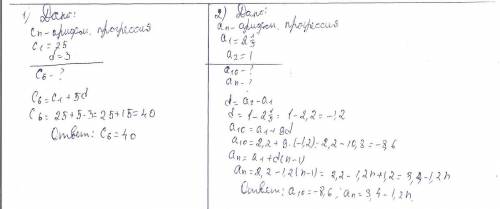 1) Дано:
Cn - арифм. прогрессия
C1 = 25
d = 3
C6 - ?
C6 = C1 + 5d
C6 = 25 + 5·3 = 25 + 15 = 40
Ответ: C6 = 40
2) Дано:
an - арифм. прогрессия
a2 = 1
a10 - ?
an - ?
d = a2 - a1
a10 = a1 + 9d
an = a1 + d(n-1)
an = 2,2 - 1,2(n-1) = 2,2 - 1,2n + 1,2 = 3,4 - 1,2n
Ответ: a10 = -8,6; an = 3,4 - 1,2n.